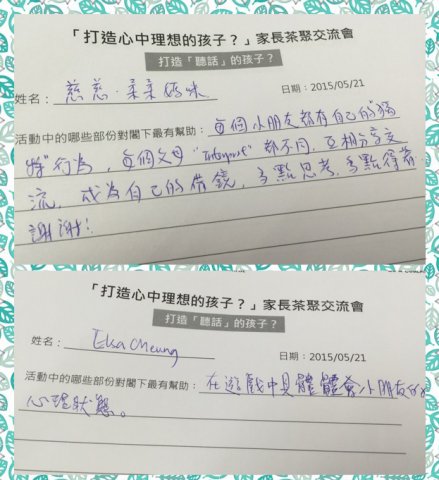 「打造心中理想的孩子？」家長茶聚交流會
打造「聽話」的孩子？
姓名：慈慈、柔柔媽咪
日期：2015/05/21
活動中的哪些部份對閣下最有幫助：每個小朋友都有自己的"獨
特"行為，每個父母 "Interpret" 都不同，互相分享交
流，成為自己的借鏡，多點思考，多點得着。
謝謝！
「打造心中理想的孩子？」家長茶聚交流會
打造「聽話」的孩子？
姓名： Elsa Cheung
日期：2015/05/21
活動中的哪些部份對閣下最有幫助：在遊戲中具體體會小朋友的
心理狀態。